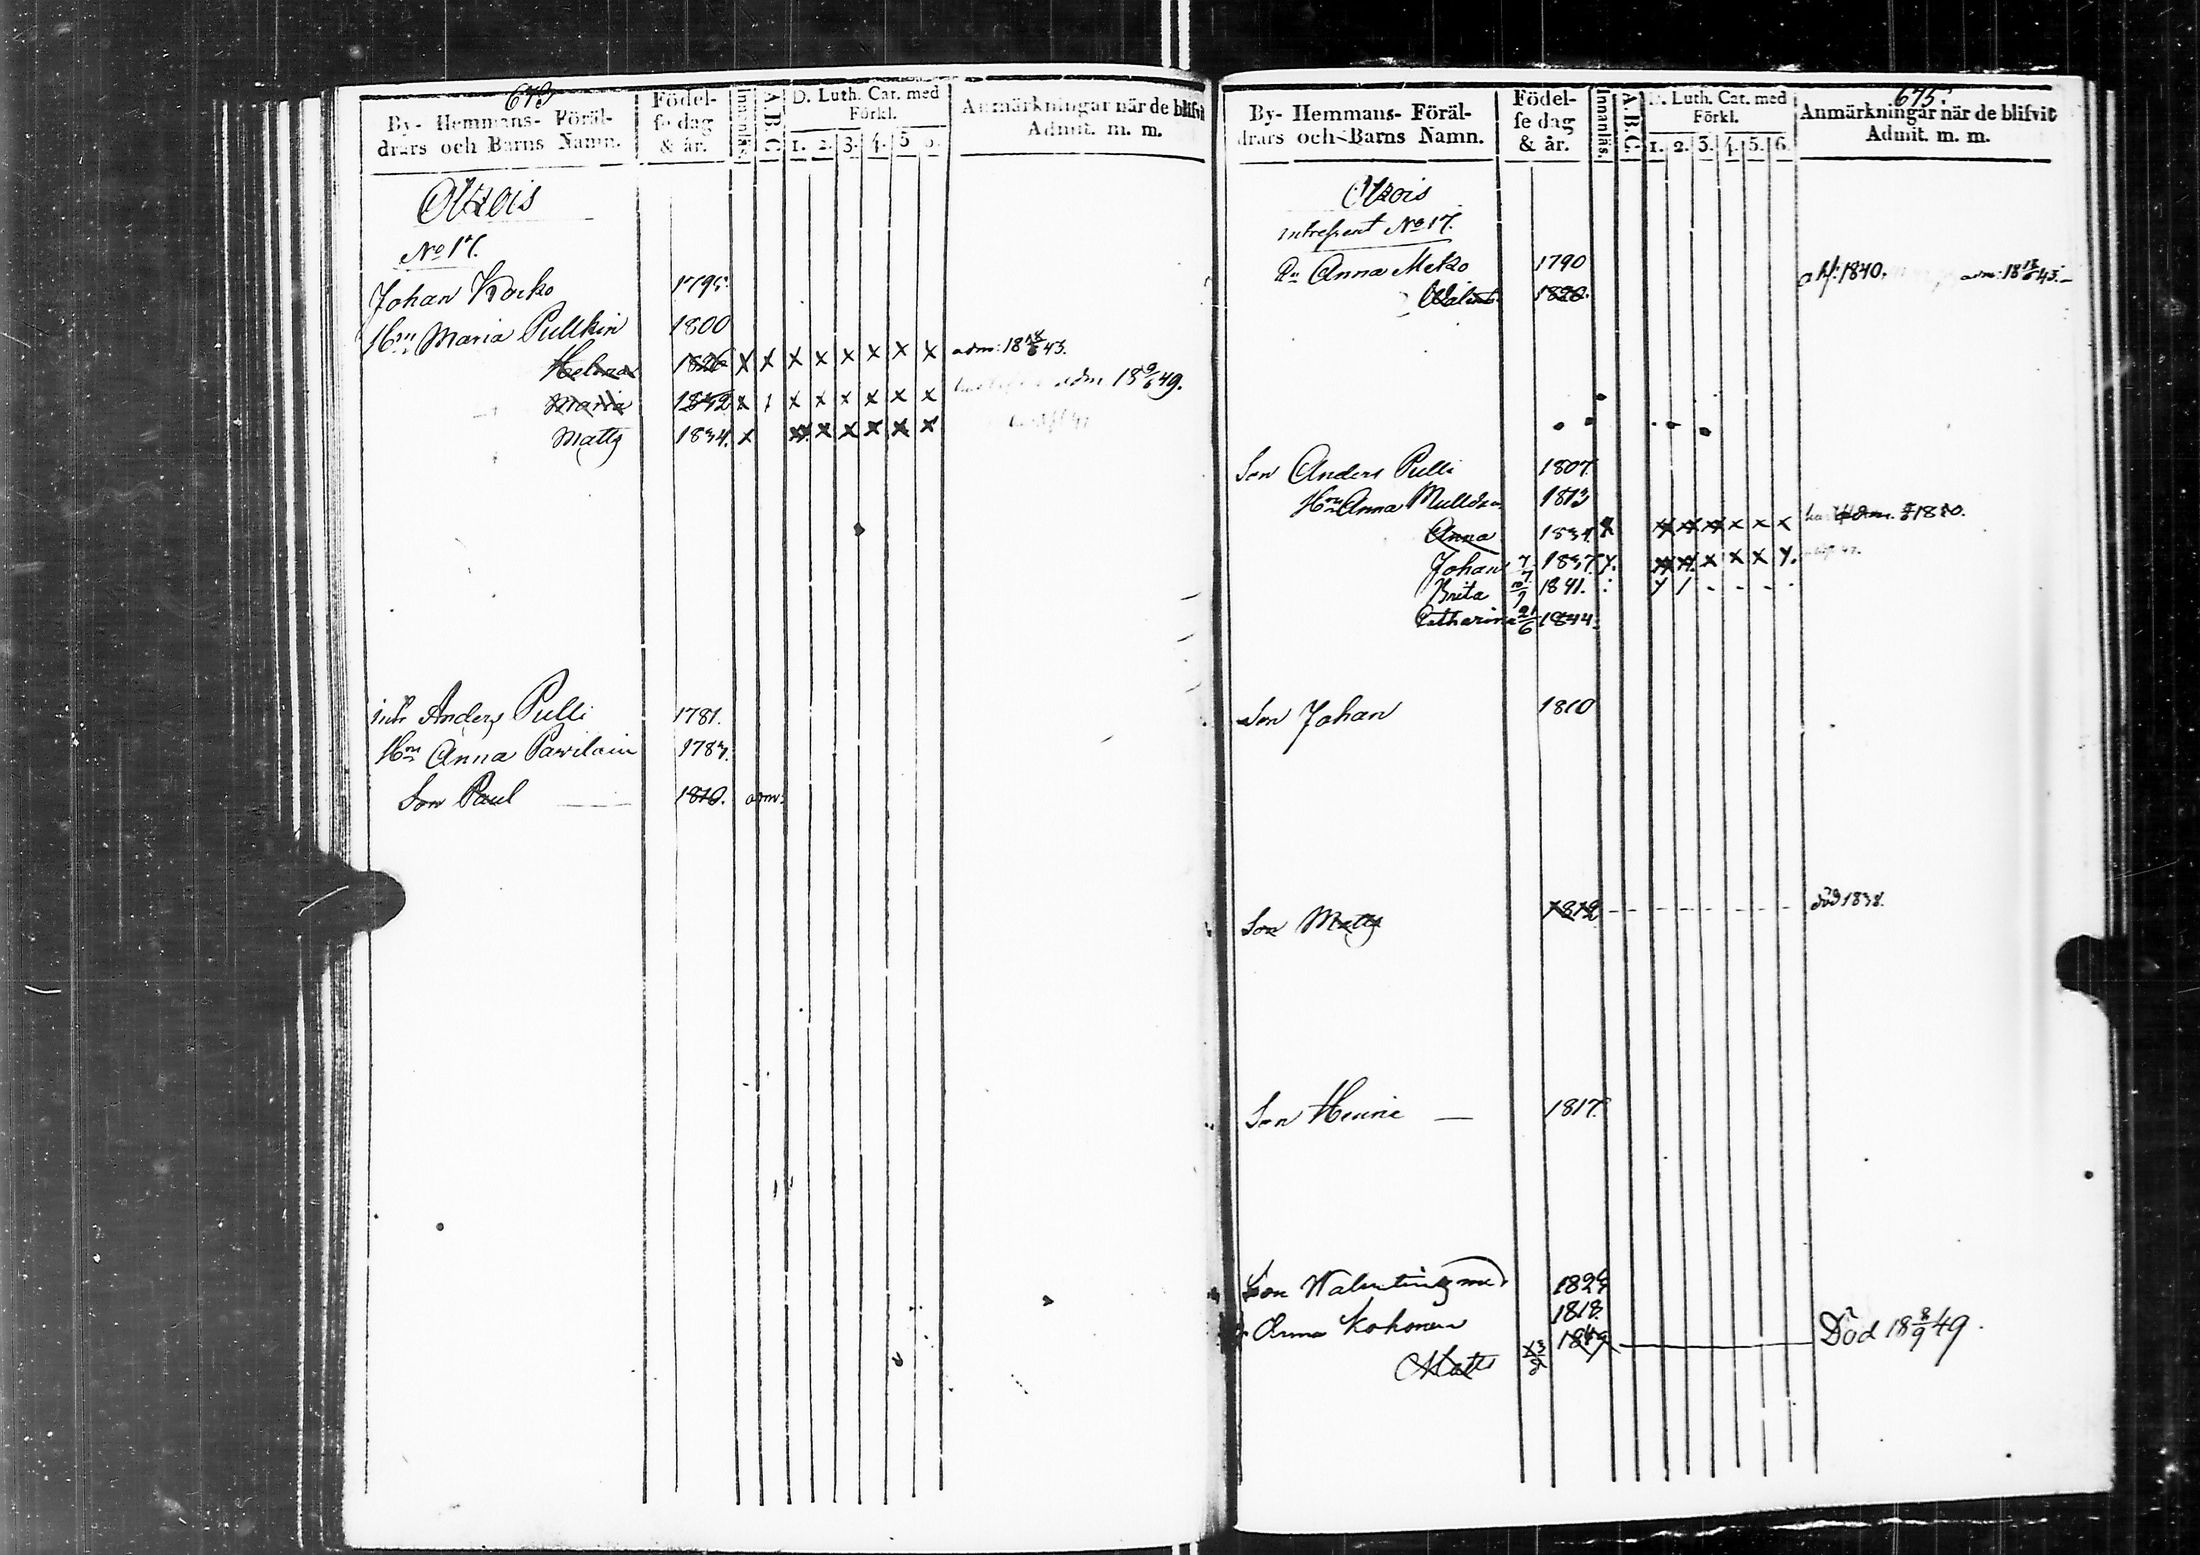 By- Hemmans- Föräl-
drars och Barns Namn.
Födel-
se dag
& år.
Innanläs.
A.B.C.
D. Luth. Cat. med
Förkl.
1. 2. 3. 4. 5
Anmärkningar när de blifvit
Admit. m. m.
No 17.
Johan 1795.
Hrn Maria Pullkin 1800
Helena 1826 x x x x x x x x adm: 18 43.
Maria 1832 x x x x x x x adm 18 9/6 49.
Matts 1834. x x x x x x x
Anders Pulli 1781.
Hrn Anna Pavilain 1783.
Son Paul 1810. adm:
675.
By- Hemmans- Föräl-
drars och Barns Namn.
Födel-
se dag
& år.
Innanläs.
A.B.C.
D. Luth. Cat. med
Förkl.
1. 2. 3. 4. 5. 6.
Anmärkningar när de blifvit
Admit. m. m.
No 17.
Anna Meko 1790
1826. 1840. adm: 18 43.
Son Anders Pulli 1807.
Hrn Anna 1813
Anna 1834 x x x x x x x
Johan 1837. x x x x x x
Brita 1841.
Catharina 21/6 1844.
Son Johan 1810
Son Matts 1812 död 1838.
Son Henric 1817.
Son Valentin med
Anna Kohonen 1818.
Matts 1849 Död 18 8/9 49.